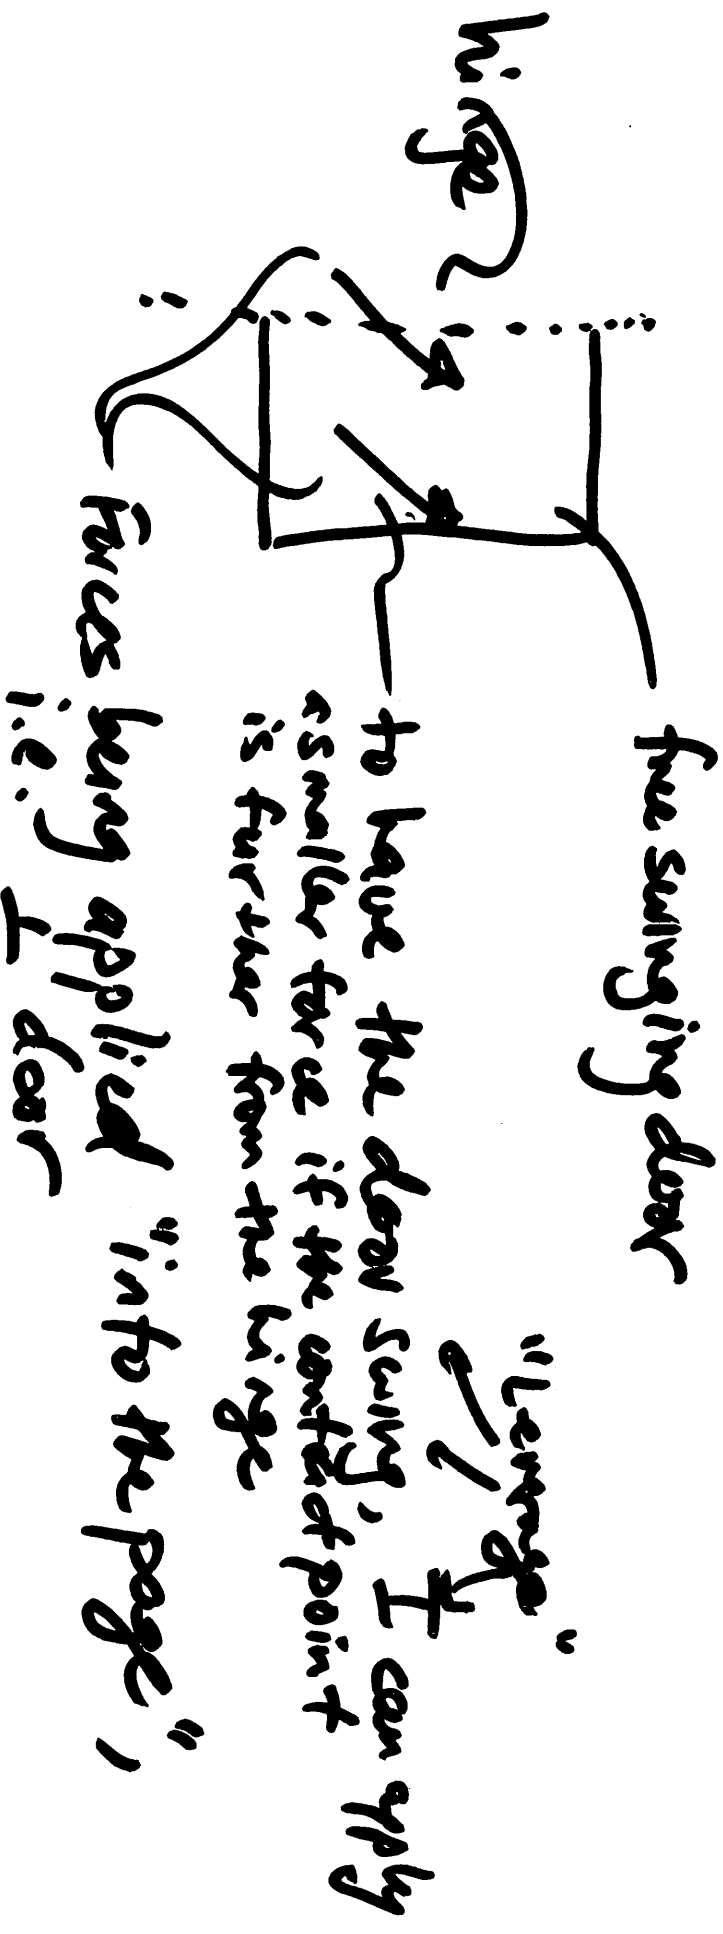 hinge
free swinging door
"Leverage"
to have the door swing, I can apply
a smaller force if the contact point
is further from the hinge
Forces being applied "into the page",
i.e. ⊥ door